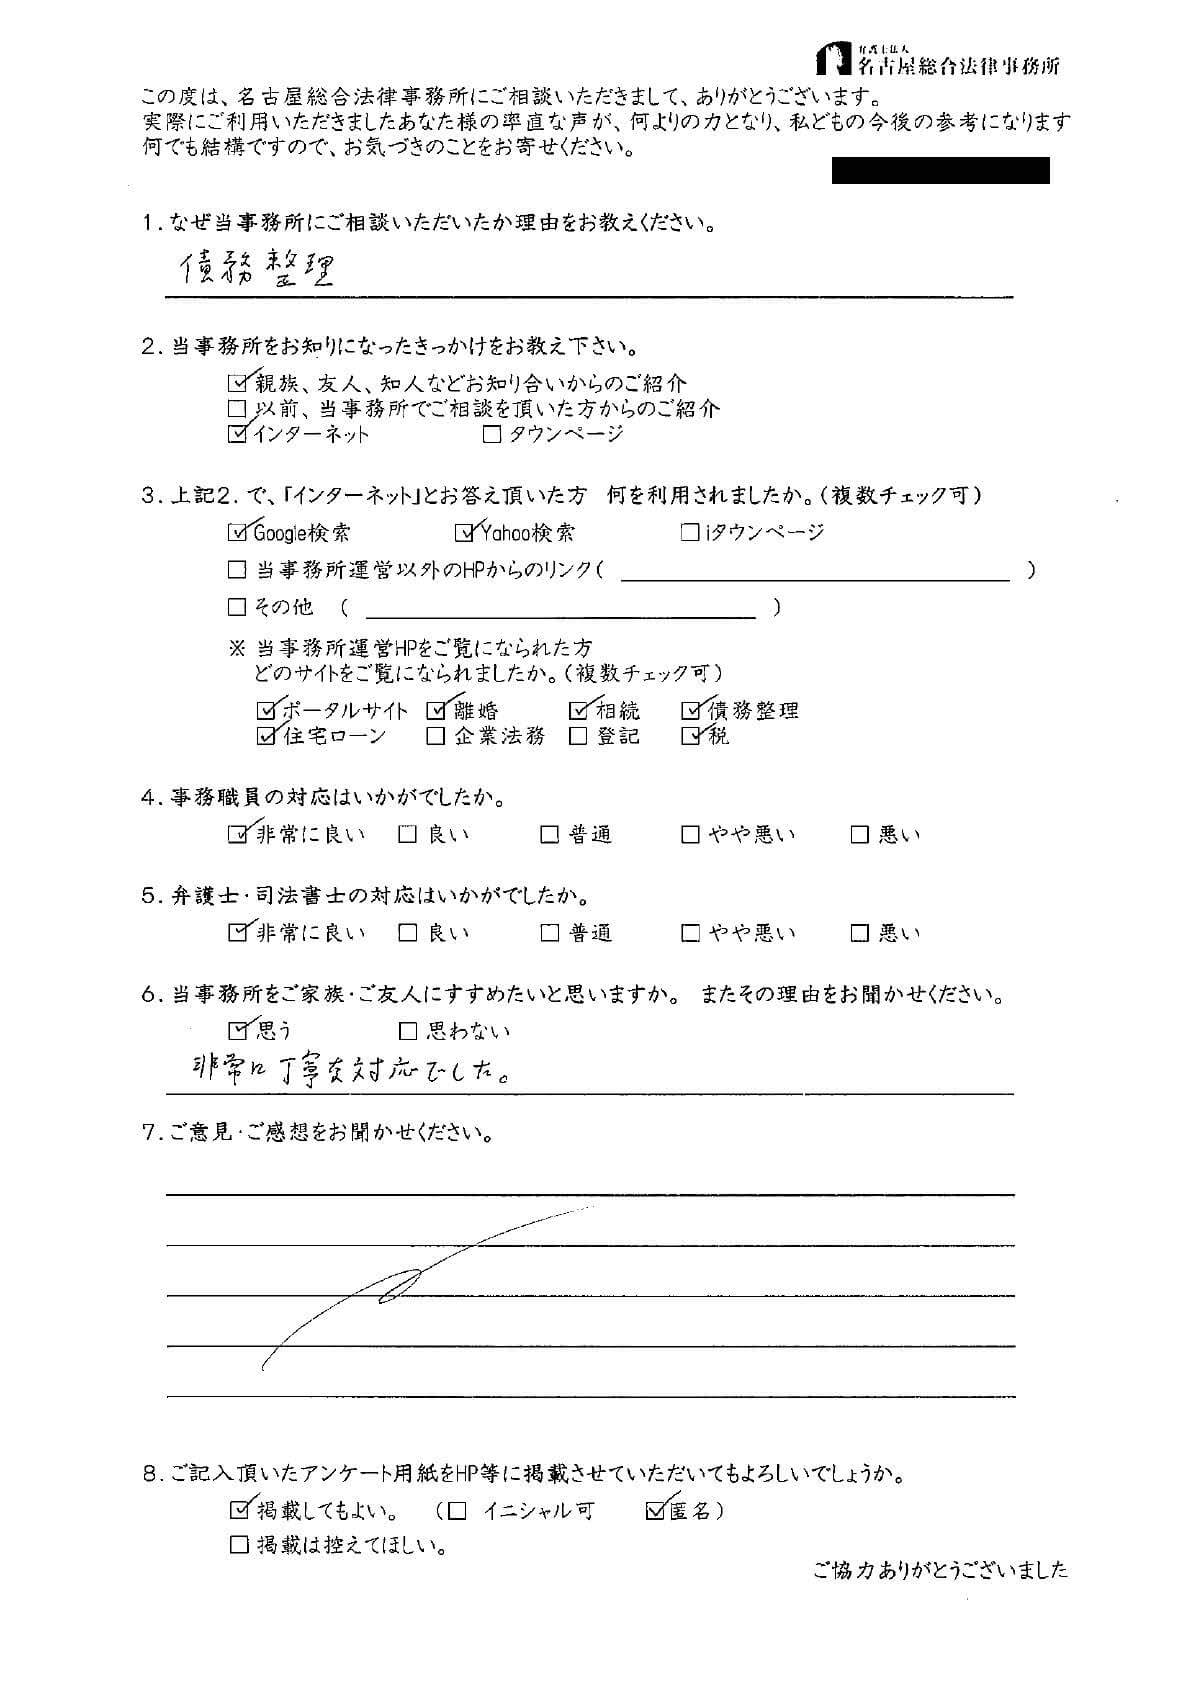 弁護士法人
名古屋総合法律事務所
この度は、名古屋総合法律事務所にご相談いただきまして、ありがとうございます。
実際にご利用いただきましたあなた様の率直な声が、何よりの力となり、私どもの今後の参考になります
何でも結構ですので、お気づきのことをお寄せください。
1. なぜ当事務所にご相談いただいたか理由をお教えください。
債務整理
2. 当事務所をお知りになったきっかけをお教え下さい。
☑親族、友人、知人などお知り合いからのご紹介
□以前、当事務所でご相談を頂いた方からのご紹介
☑インターネット □タウンページ
3. 上記2. で、「インターネット」とお答え頂いた方 何を利用されましたか。(複数チェック可)
☑Google検索 ☑Yahoo検索 □iタウンページ
□ 当事務所運営以外のHPからのリンク( )
□その他 ( )
※ 当事務所運営HPをご覧になられた方
どのサイトをご覧になられましたか。(複数チェック可)
☑ポータルサイト ☑離婚 ☑相続 ☑債務整理
☑住宅ローン □企業法務 □登記 ☑税
4. 事務職員の対応はいかがでしたか。
☑非常に良い □良い □普通 □やや悪い □悪い
5. 弁護士・司法書士の対応はいかがでしたか。
☑非常に良い □良い □普通 □やや悪い □悪い
6. 当事務所をご家族・ご友人にすすめたいと思いますか。 またその理由をお聞かせください。
☑思う □思わない
非常に丁寧な対応でした。
7. ご意見・ご感想をお聞かせください。
8. ご記入頂いたアンケート用紙をHP等に掲載させていただいてもよろしいでしょうか。
☑掲載してもよい。 (□ イニシャル可 ☑匿名)
□掲載は控えてほしい。
ご協力ありがとうございました